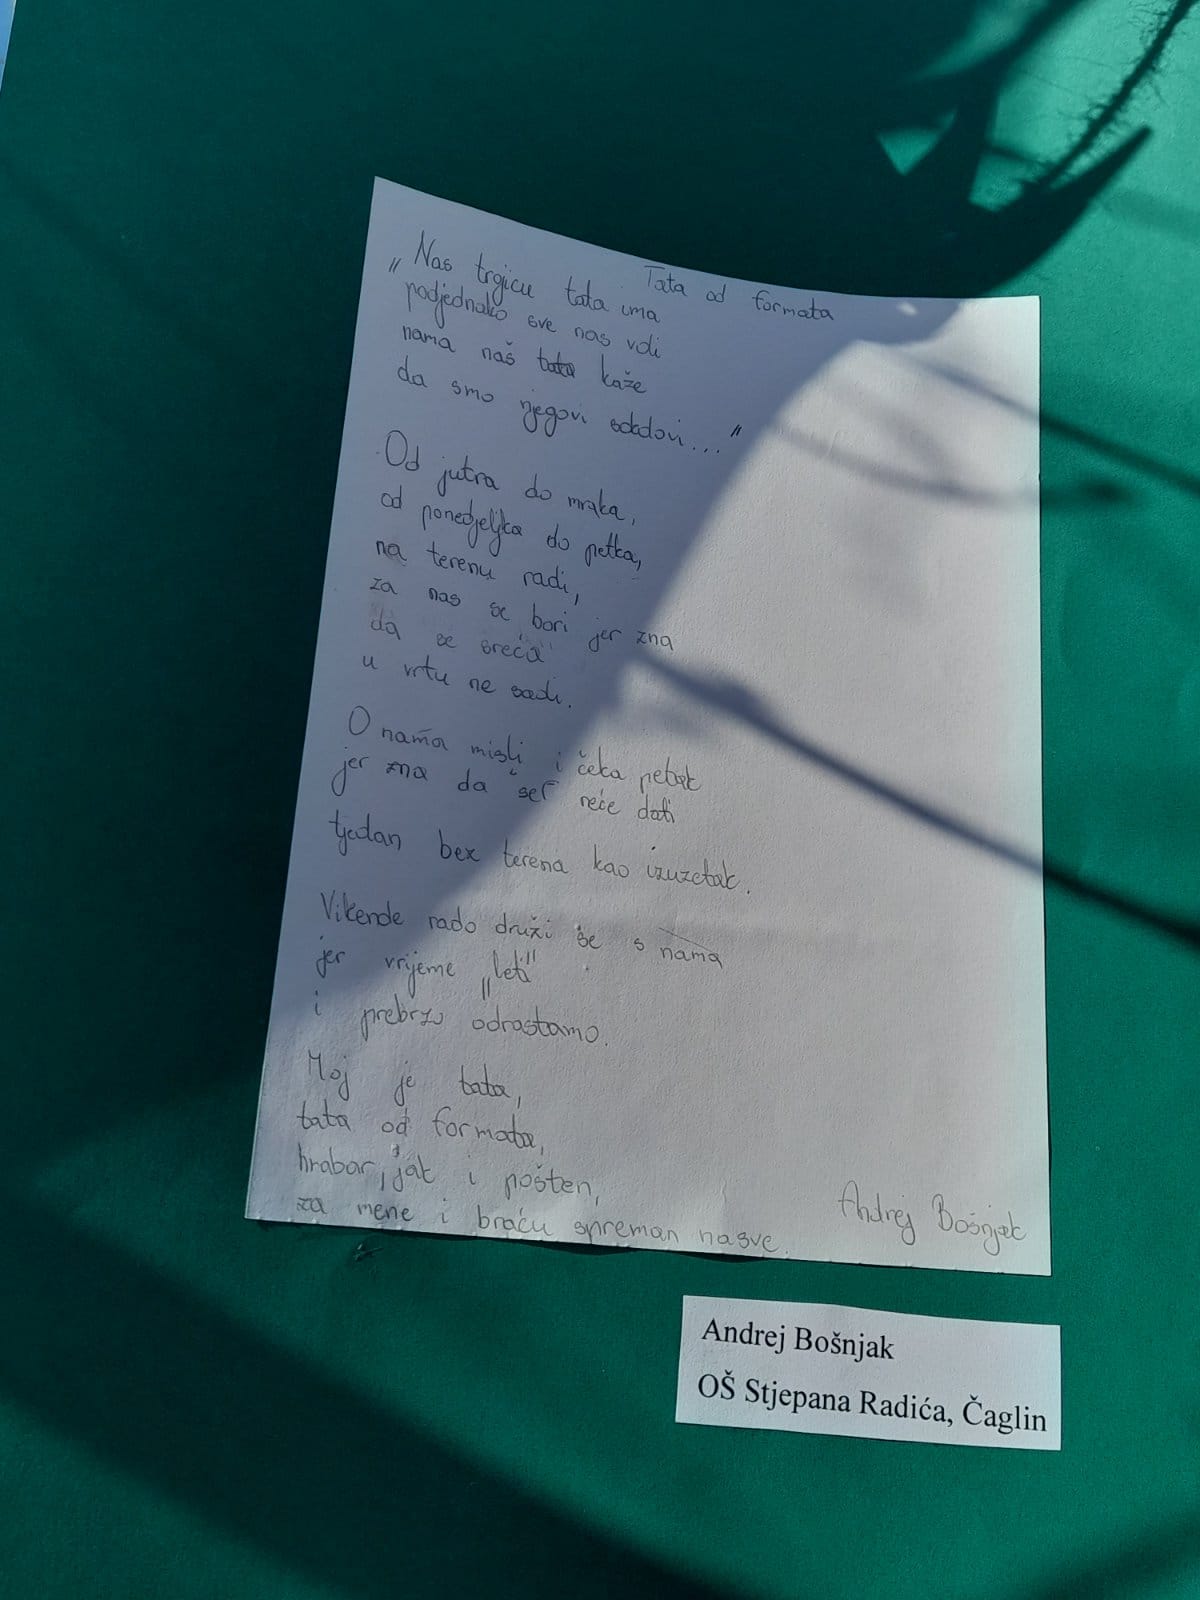 Tata od formata
„Nas trojicu tata ima
podjednako sve nas voli
nama naš tata kaže
da smo njegovi sokolovi..."
Od jutra do mraka,
od ponedjeljka do petka,
na terenu radi,
za nas se bori jer zna
da se sreća
u vrtu ne sadi.
O nama misli i čeka petak
jer zna da šef neće dati
tjedan bez terena kao izuzetak.
Vikende rado druži se s nama
jer vrijeme „leti"
i prebrzo odrastamo.
Moj je tata,
tata od formata,
hrabar, jak i pošten,
za mene i braću spreman nasve.
Andrej Bošnjak
Andrej Bošnjak
OŠ Stjepana Radića, Čaglin